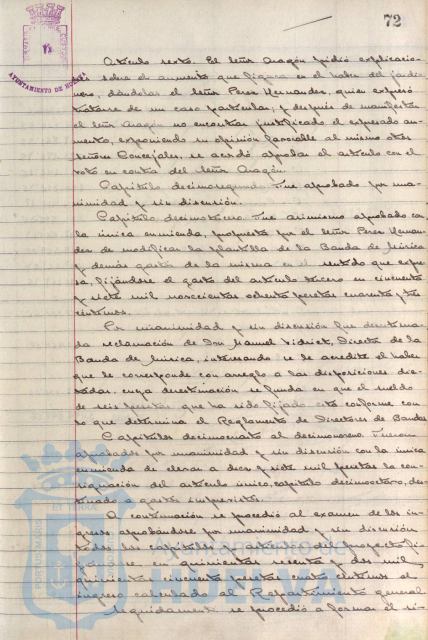 72
AYUNTAMIENTO DE HUELVA
Artículo sexto. El señor Aragón pidió explicacio-
nes sobre el aumento que figura en el haber del jardi-
nero, dándolas el señor Perez Hernandez, quien expresó
tratarse de un caso particular, y despues de manifestar
el señor Aragón no encontrar justificado el expresado au-
mento, exponiendo su opinión favorable al mismo otros
señores Concejales, se acordó aprobar el artículo con el
voto en contra del señor Aragón.
Capítulo decimosegundo. Fue aprobado por una-
nimidad y sin discusión.
Capítulo decimotercero. Fue asimismo aprobado con
la única enmienda, propuesta por el señor Perez Hernan-
dez de modificar la plantilla de la Banda de Música
y demás gastos de la misma en el sentido que expre-
sa, fijándose el gasto del artículo tercero en cincuenta
y siete mil novecientas ochenta pesetas cuarenta y tres
céntimos.
Por unanimidad y sin discusión fue desestima-
da reclamación de Don Manuel Vidriet, Director de la
Banda de Música, interesando se le acredite el haber
que le corresponde con arreglo a las disposiciones dic-
tadas, cuya desestimación se funda en que el sueldo
de seis pesetas que ha sido fijado está conforme con
lo que determina el Reglamento de Directores de Bandas
Capítulos decimocuarto al decimonoveno. Fueron
aprobados por unanimidad y sin discusión con la única
enmienda de elevar a diez y siete mil pesetas la con-
signación del artículo único, capítulo decimoctavo, des-
tinado a gastos imprevistos.
A continuación se procedió al examen de los in-
gresos, aprobándose por unanimidad y sin discusión
todos los capítulos y artículos del proyecto, fi-
jándose en quinientas sesenta y dos mil
quinientas cincuenta pesetas cuatro céntimos el
ingreso calculado al Repartimiento general
Seguidamente se procedió a formar el si-
Ayuntamiento de
HUELVA